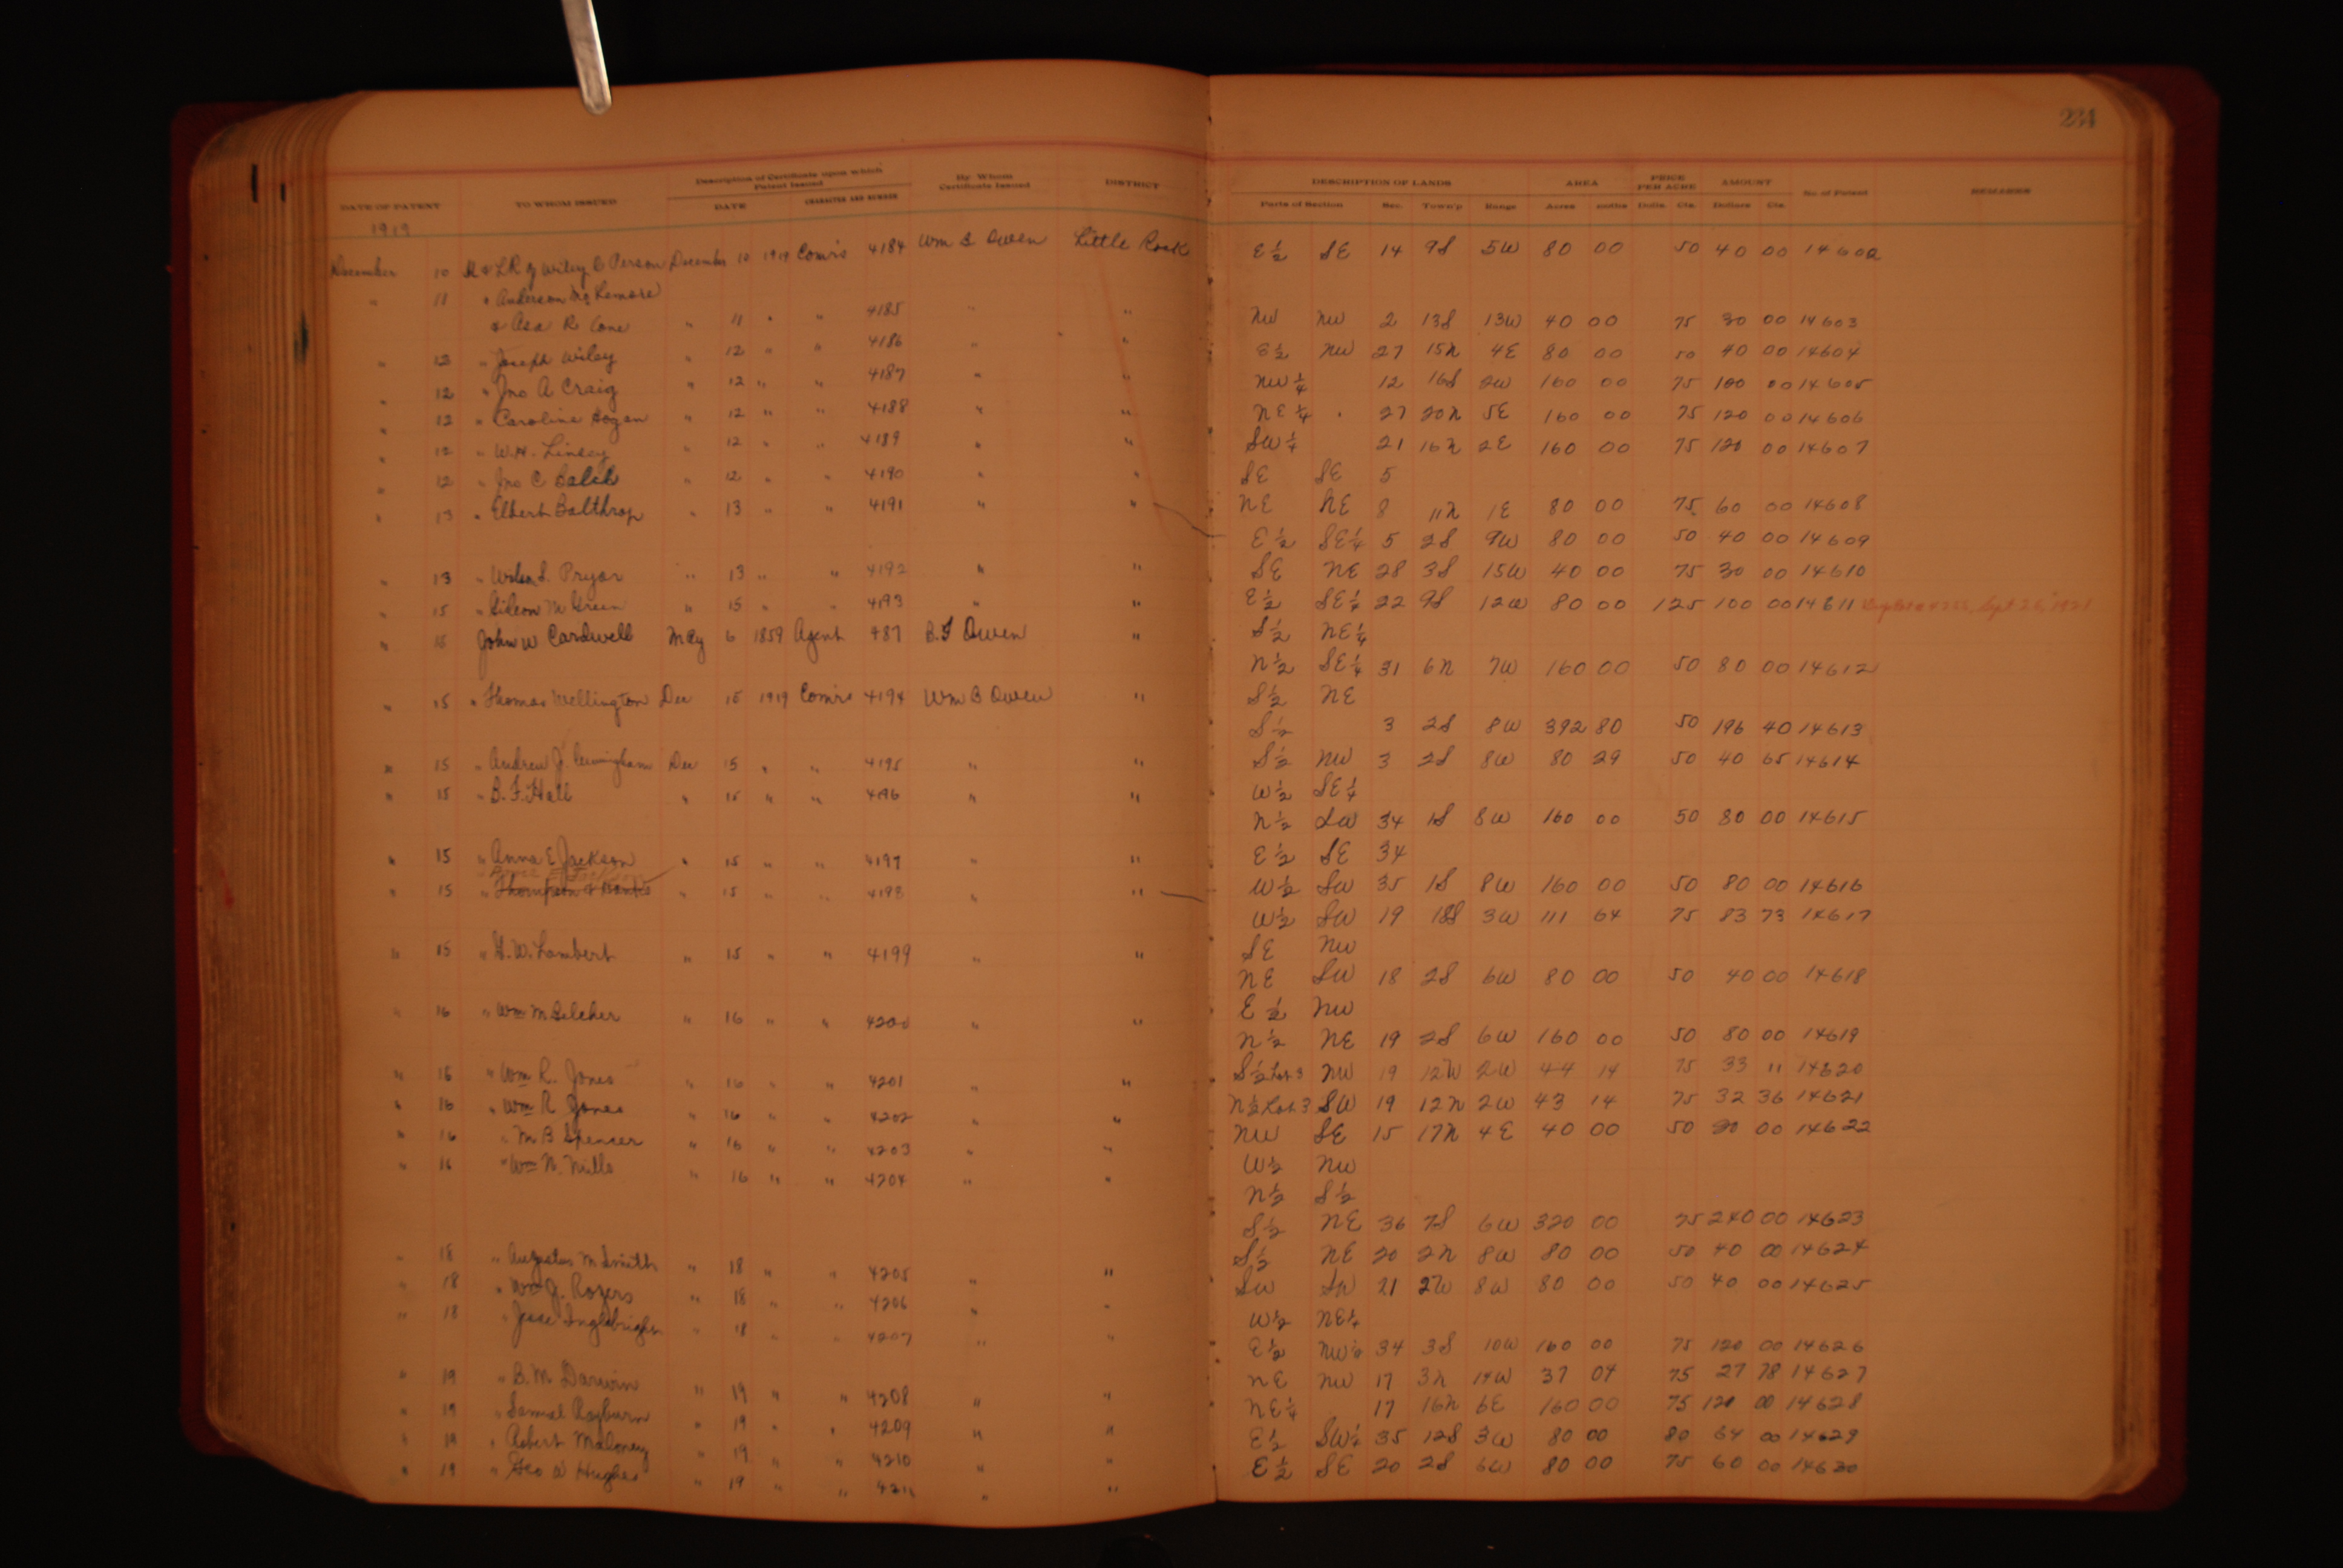 234
Description of Certificate upon which Patent Issued
By Whom Certificate Issued
DISTRICT
DATE OF PATENT TO WHOM ISSUED DATE CHARACTER AND NUMBER
DESCRIPTION OF LANDS AREA PRICE PER ACRE AMOUNT No. of Patent REMARKS
Parts of Section Sec. Town'p Range Acres 100ths Dolls. Cts. Dollars Cts.
1919
December 10 H & LR of Wiley B Person December 10 1919 Com'rs 4184 Wm B Owen Little Rock
" 11 " Anderson Mc Lemore
& Asa R Cone " 11 " " 4185 " "
" 12 " Joseph Wiley " 12 " " 4186 " "
" 12 " Jno A Craig " 12 " " 4187 " "
" 12 " Caroline Hogan " 12 " " 4188 " "
" 12 " W.H. Linsey " 12 " " 4189 " "
" 12 " Jno C " 12 " " 4190 " "
" 13 " Elbert Balthrop " 13 " " 4191 " "
" 13 " Pryor " 13 " " 4192 " "
" 15 " Gideon M Green " 15 " " 4193 " "
" 15 John W Cardwell May 6 1859 Agent 487 B.F Owen "
" 15 " Thomas Wellington Dec 15 1919 Com'rs 4194 Wm B Owen "
" 15 " Andrew J. Cunningham Dec 15 " " 4195 " "
" 15 " B. F. Hall " 15 " " 4196 " "
" 15 " Anna E Jackson " 15 " " 4197 " "
" 15 " Thompson & " 15 " " 4198 " "
" 15 " G. W. Lambert " 15 " " 4199 " "
" 16 " Wm M Belcher " 16 " " 4200 " "
" 16 " Wm R. Jones " 16 " " 4201 " "
" 16 " Wm R Jones " 16 " " 4202 " "
" 16 " M B Spencer " 16 " " 4203 " "
" 16 " Wm N. Mills " 16 " " 4204 " "
" 18 " Augustus M Smith " 18 " " 4205 " "
" 18 " Wm J. Rogers " 18 " " 4206 " "
" 18 " Jesse " 18 " " 4207 " "
" 19 " B. M. Darwin " 19 " " 4208 " "
" 19 " Samuel Rayburn " 19 " " 4209 " "
" 19 " Robert Maloney " 19 " " 4210 " "
" 19 " Geo W Hughes " 19 " " 4211 " "
E½ SE 14 9S 5W 80 00 50 40 00 14602
NW NW 2 13S 13W 40 00 75 30 00 14603
E½ NW 27 15N 4E 80 00 50 40 00 14604
NW¼ 12 16S 2W 160 00 75 100 00 14605
NE¼ 27 20N 5E 160 00 75 120 00 14606
SW¼ 21 16N 2E 160 00 75 120 00 14607
SE SE 5
NE NE 8 11N 1E 80 00 75 60 00 14608
E½ SE¼ 5 2S 9W 80 00 50 40 00 14609
SE NE 28 3S 15W 40 00 75 30 00 14610
E½ SE¼ 22 9S 12W 80 00 1 25 100 00 14611 Sept 26, 1921
S½ NE¼
N½ SE¼ 31 6N 7W 160 00 50 80 00 14612
S½ NE
S½ 3 2S 8W 392 80 50 196 40 14613
S½ NW 3 2S 8W 80 29 50 40 65 14614
W½ SE¼
N½ SW 34 1S 8W 160 00 50 80 00 14615
E½ SE 34
W½ SW 35 1S 8W 160 00 50 80 00 14616
W½ SW 19 18S 3W 111 64 75 83 73 14617
SE NW
NE SW 18 2S 6W 80 00 50 40 00 14618
E½ NW
N½ NE 19 2S 6W 160 00 50 80 00 14619
S½ Lot 3 NW 19 12N 2W 44 14 75 33 11 14620
N½ Lot 3 SW 19 12N 2W 43 14 75 32 36 14621
NW SE 15 17N 4E 40 00 50 20 00 14622
W½ NW
N½ S½
S½ NE 36 7S 6W 320 00 75 240 00 14623
S½ NE 20 2N 8W 80 00 50 40 00 14624
SW 21 8W 80 00 50 40 00 14625
W½ NE¼
E½ NW¼ 34 3S 10W 160 00 75 120 00 14626
NE NW 17 3N 14W 37 04 75 27 78 14627
NE¼ 17 16N 6E 160 00 75 120 00 14628
E½ SW¼ 35 12S 3W 80 00 80 64 00 14629
E½ SE 20 2S 6W 80 00 75 60 00 14630